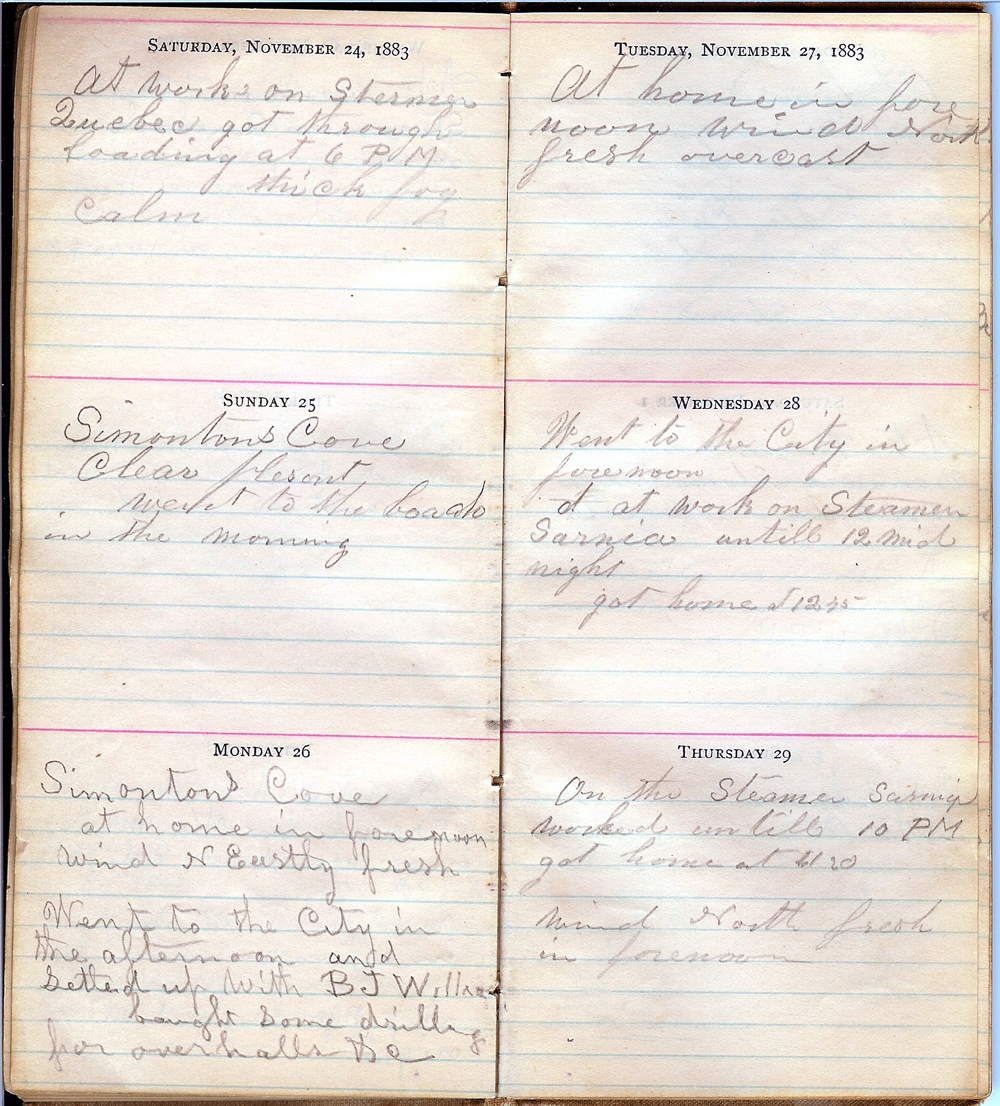 SATURDAY, NOVEMBER 24, 1883
At work on Stemer
Quebec got through
loading at 6 P.M
thick fog
Calm
SUNDAY 25
Simontons Cove
Clear plesent
went to the
in the morning
MONDAY 26
Simontons Cove
at home in forenoon
wind N Eastly fresh
Went to the City in
the afternoon and
Setled up with B J
bought Some drilling
for overhalls &c
TUESDAY, NOVEMBER 27, 1883
At home in fore
noon wind North
fresh overcast
WEDNESDAY 28
Went to the City in
forenoon
at work on Steamer
Sarnia untill 12 mid
night
got home at
THURSDAY 29
On the Steamer Sarnia
worked untill 10 PM
got home at
wind North fresh
in forenoon